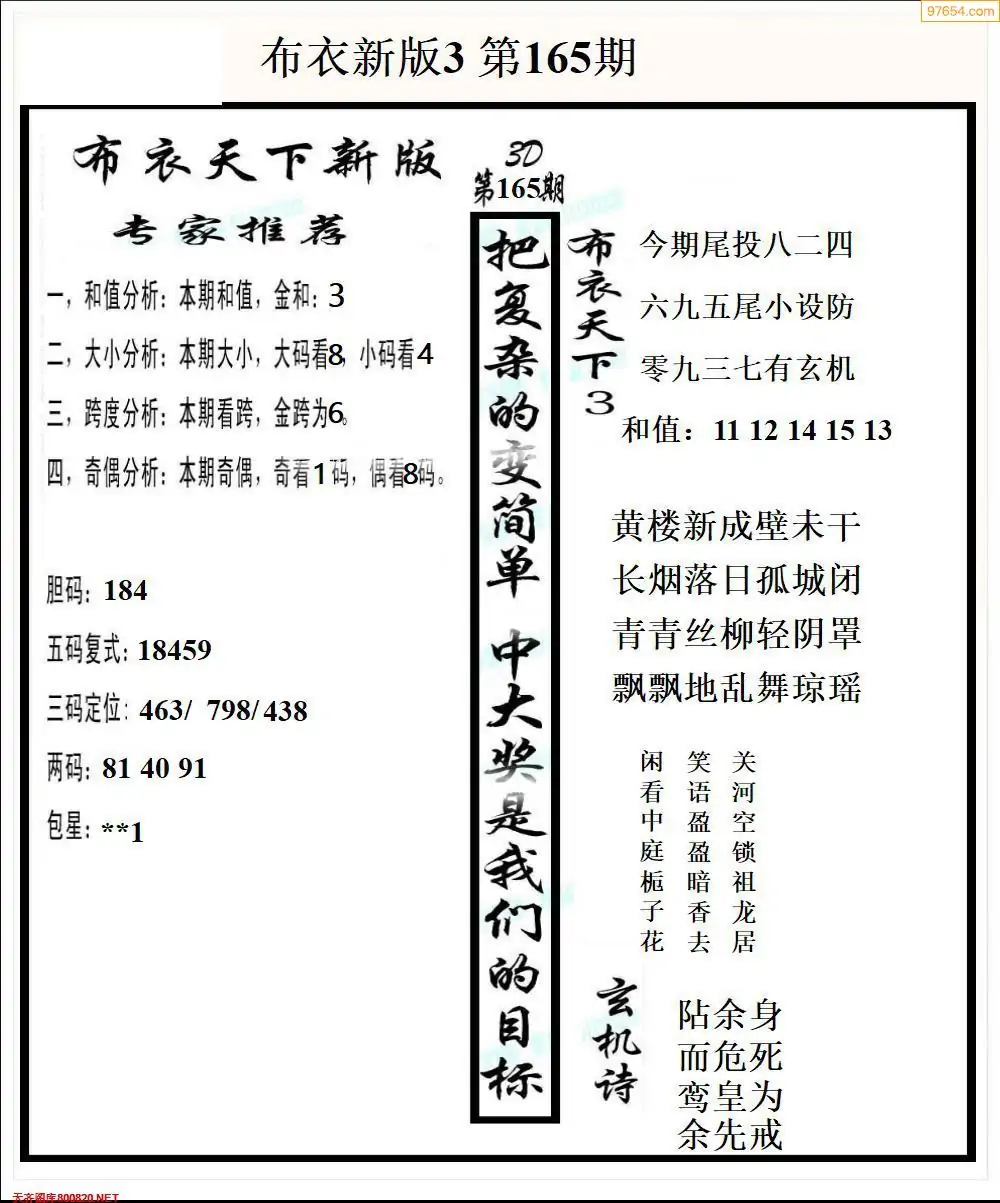 97654.com
布衣新版3 第165期
布衣天下新版
专家推荐
一，和值分析：本期和值，金和：3
二，大小分析：本期大小，大码看8，小码看4
三，跨度分析：本期看跨，金跨为6。
四，奇偶分析：本期奇偶，奇看1码，偶看8码。
胆码：184
五码复式：18459
三码定位：463/ 798/438
两码：81 40 91
包星：**1
3D
第165期
把复杂的变简单 中大奖是我们的目标
布衣天下3
今期尾投八二四
六九五尾小设防
零九三七有玄机
和值：11 12 14 15 13
黄楼新成壁未干
长烟落日孤城闭
青青丝柳轻阴罩
飘飘地乱舞琼瑶
关河空锁祖龙居
笑语盈盈暗香去
闲看中庭栀子花
玄机诗
阽余身
而危死
鸾皇为
余先戒
天齐图库800820.NET